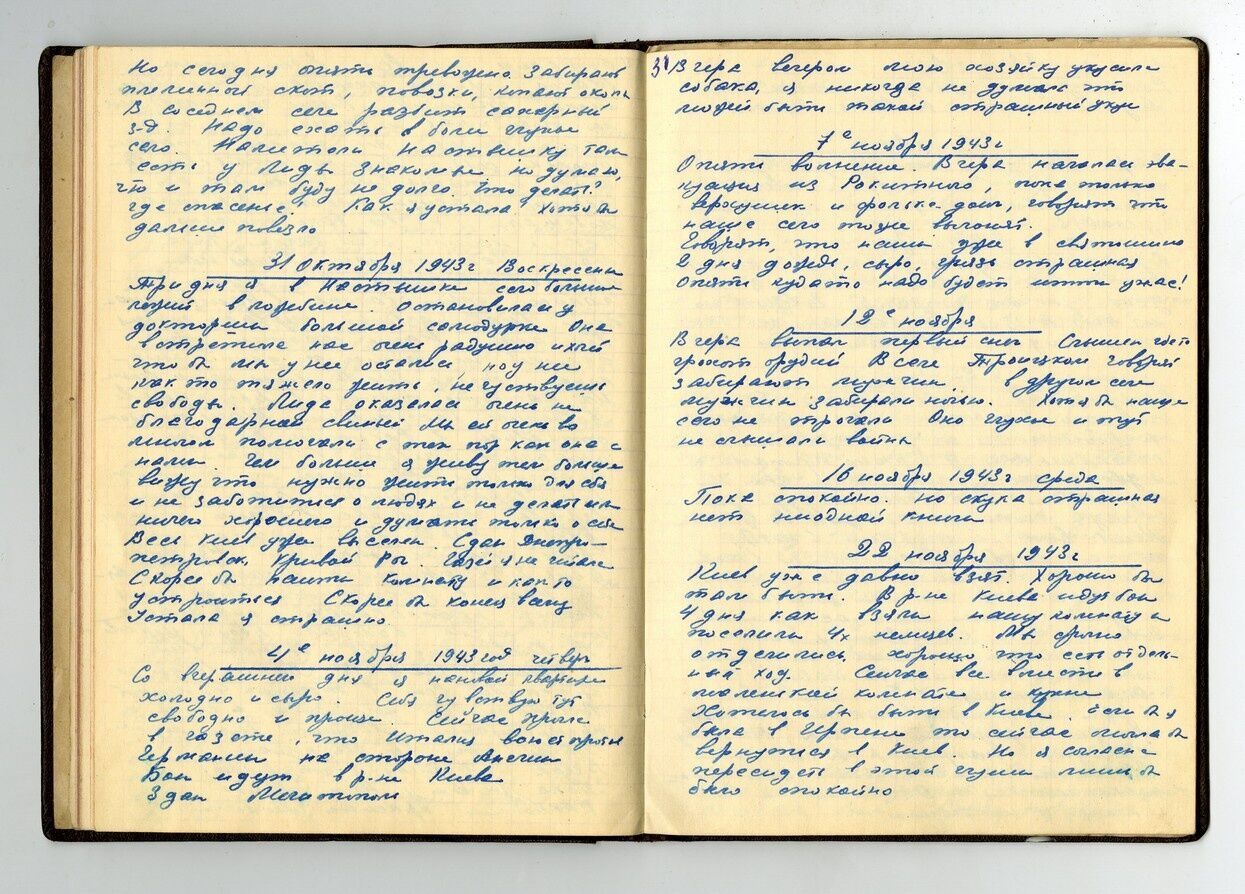 Но сегодня опять тревожно. Забирают
племенной скот, повозки, копают окопы
В соседнем селе разбит сахарный
з-д. Надо ехать в более глухое
село. Наметили Насташку там
есть у Лиды знакомые но думаю,
что и там буду не долго. Что делать?
где спасенье. Как я устала. Хотя бы
дальше повезло
31 Октября 1943 г Воскресенье
Три дня я в Насташке село большое
лежит в ложбине. Остановилась у
докторши большой самодурки Она
встретила нас очень радушно и хочет
что бы мы у нее остались, но у нее
как то тяжело жить, не чувствуешь
свободы. Лида оказалась очень не
благодарной свиньей Мы ей очень во
многом помогали с тех пор как она с
нами. Чем больше я живу тем больше
вижу что нужно жить только для себя
и не заботиться о людях и не делать им
ничего хорошего и думать только о себе
Весь Киев уже выселен. Сдан Днепро-
петровск, Кривой Рог. Газет я не читала
Скорее бы найти комнату и как то
устроиться Скорее бы конец всему
Устала я страшно.
4е ноября 1943 год четверг
Со вчерашнего дня я на новой квартире
холодно и сыро. Себя чувствую тут
свободно и проще. Сейчас прочла
в газете, что Италия воюет против
Германии на стороне Англии
Бои идут в р-не Киева
Сдан Мелитополь
31 Вчера вечером мою хозяйку укусила
собака, я никогда не думала что
может быть такой страшный укус
7е ноября 1943 г
Опять волнение. Вчера началась эва-
куация из Рокитного, пока только
верхушек и фольксдойч, говорят что
наше село тоже выгонят.
Говорят, что наши уже в Святошино
2 дня дождь, сыро, грязь страшная
Опять куда то надо будет идти ужас!
12е ноября
Вчера выпал первый снег Слышен где то
грохот орудий В селе Троицком говорят
забирают мужчин. в другом селе
мужчин забирали ночью. Хотя бы наше
село не трогали Оно глухое и тут
не слышали войны
16 ноября 1943 г среда
Пока спокойно. но скука страшная
нет ни одной книги
22 ноября 1943 г
Киев уже давно взят. Хорошо бы
там быть. В р-не Киева идут бои
4 дня как взяли нашу комнату и
поселили 4х немцев. Мы срочно
отделились, хорошо что есть отдель-
ный ход. Сейчас все вместе в
маленькой комнате и кухне
Хотелось бы быть в Киеве. Если бы я
была в Ирпене то сейчас могла бы
вернуться в Киев. Но я согласна
пересидеть в этой глуши лишь бы
было спокойно